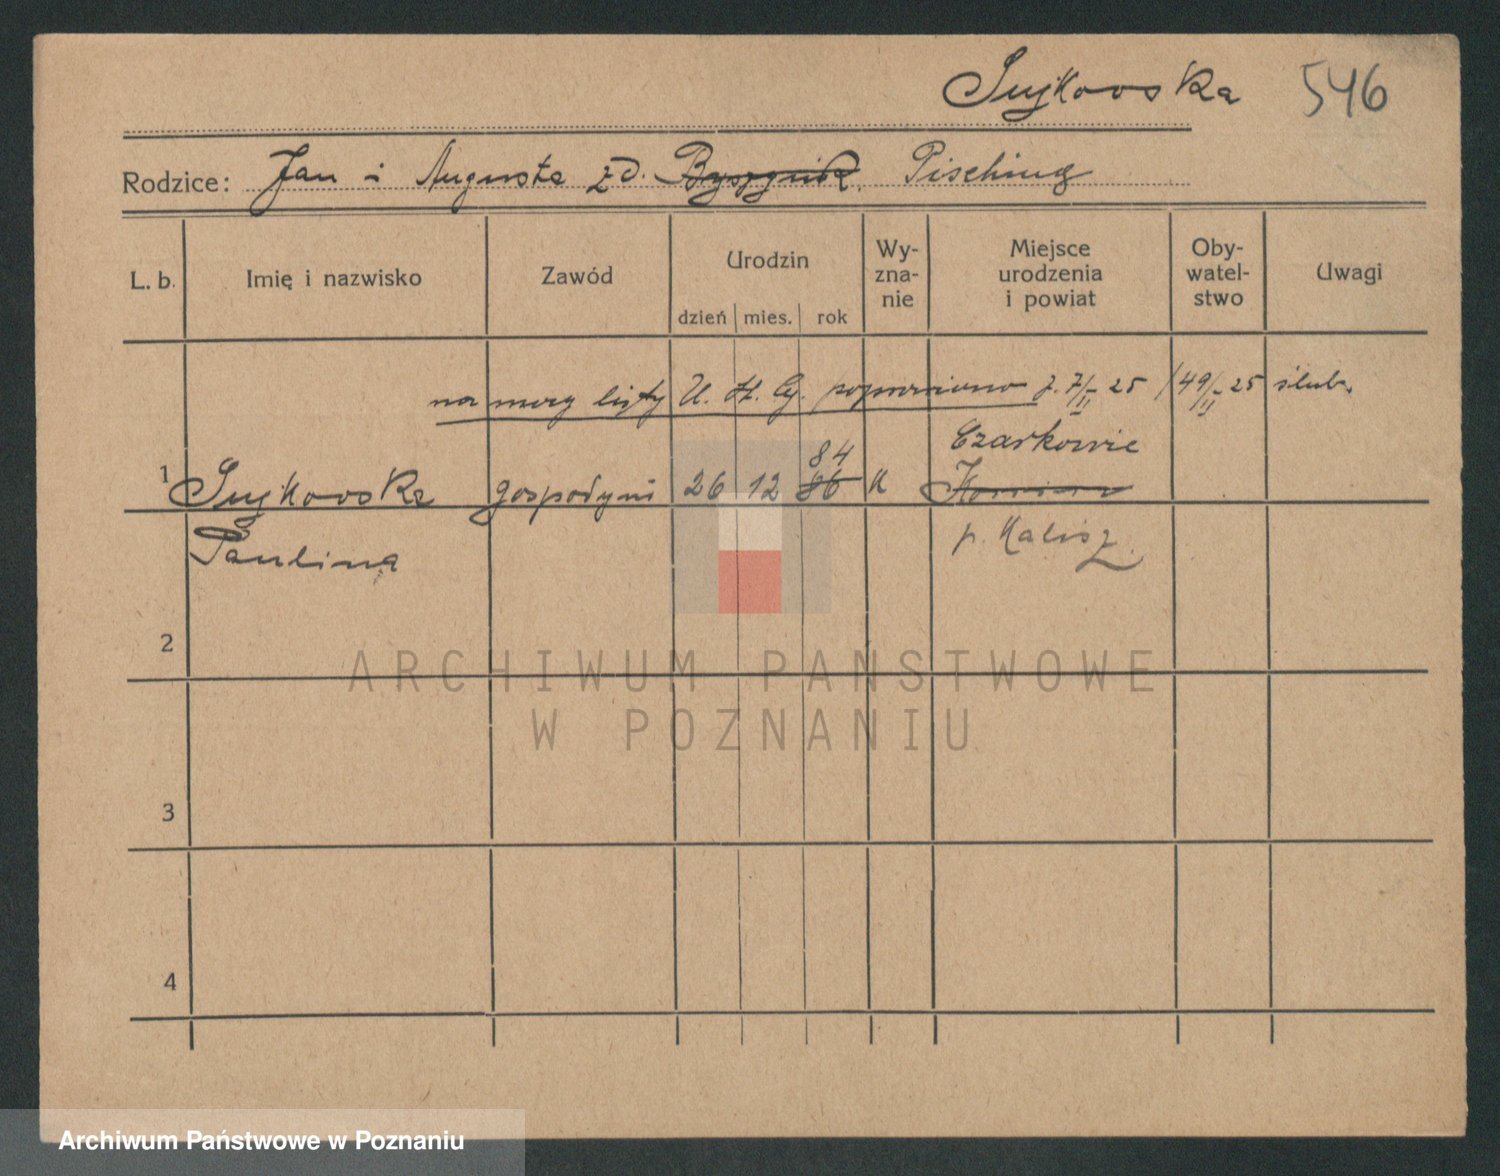 Sujkowska 546
Rodzice: Jan i Augusta zd. Pisching
L. b. Imię i nazwisko Zawód Urodzin dzień mies. rok Wy-zna-nie Miejsce urodzenia i powiat Oby-watel-stwo Uwagi
na mocy listy U. St. Cy. poprawiono z. 7/II 25 /49/II 25 ślub.
84 Czarkowie
1 Sujkowska gospodyni 26 12 86 K
Paulina p. Kalisz.
2
3
4
ARCHIWUM PAŃSTWOWE
W POZNANIU
Archiwum Państwowe w Poznaniu